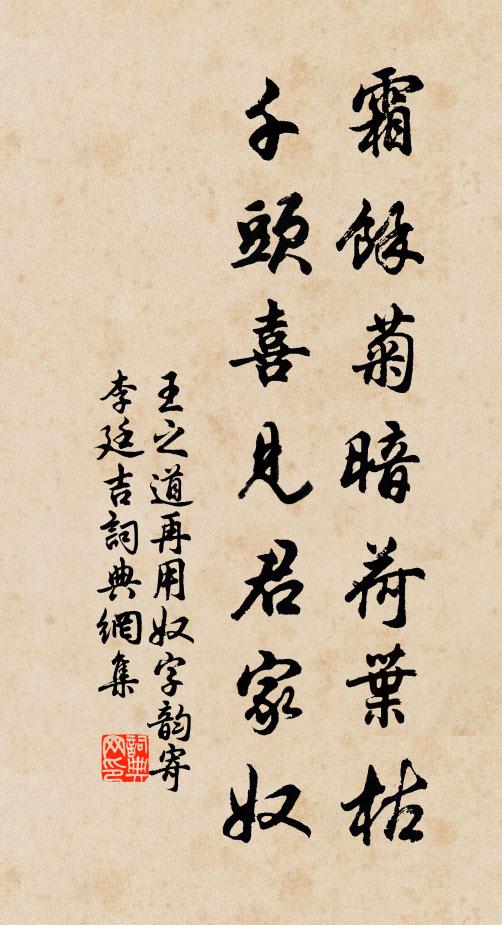 霜餘菊暗荷葉枯
千頭喜見君家奴
王之道再用奴字韵寄
李廷吉詞典網集
詞典网印